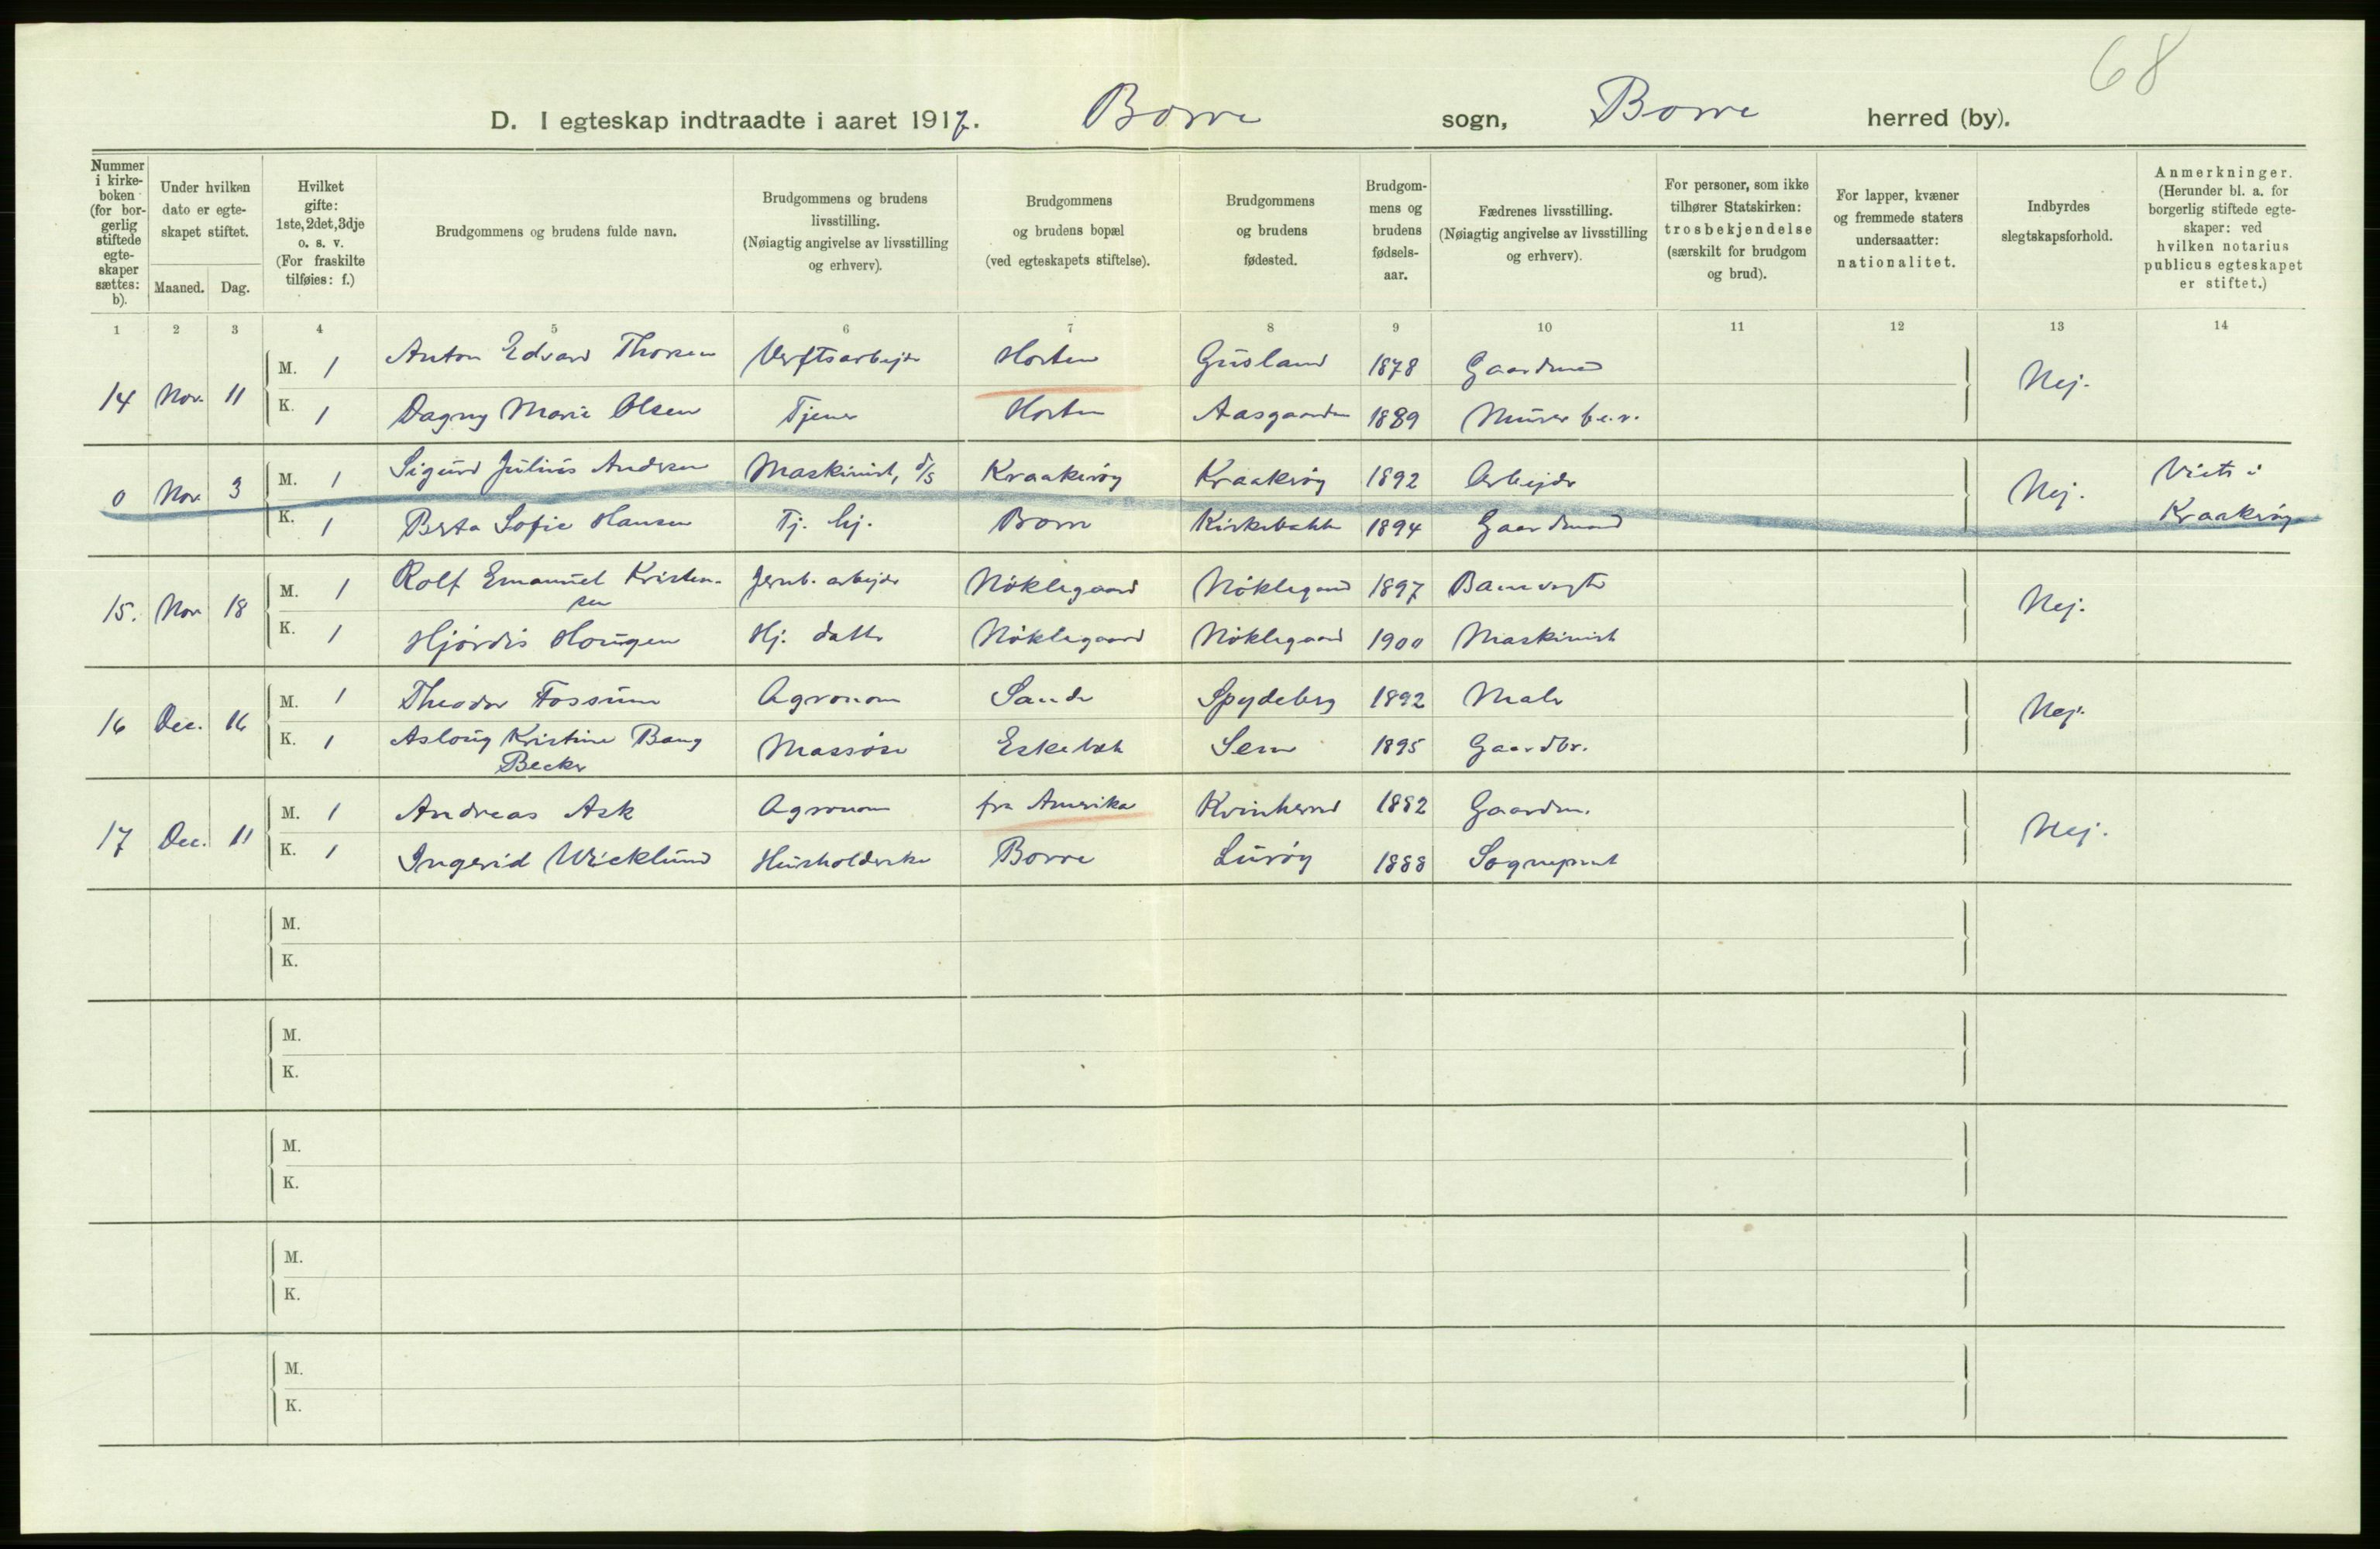 68
D. I egteskap indtraadte i aaret 1917. Borre sogn, Borre herred (by).
Nummer i kirke- boken (for bor- gerlig stiftede egte- skaper sættes: b).
Under hvilken dato er egte- skapet stiftet.
Maaned. Dag.
Hvilket gifte: 1ste, 2det, 3dje o. s. v. (For fraskilte tilføies: f.)
Brudgommens og brudens fulde navn.
Brudgommens og brudens livsstilling. (Nøiagtig angivelse av livsstilling og erhverv).
Brudgommens og brudens bopæl (ved egteskapets stiftelse).
Brudgommens og brudens fødested.
Brudgom- mens og brudens fødsels- aar.
Fædrenes livsstilling. (Nøiagtig angivelse av livsstilling og erhverv).
For personer, som ikke tilhører Statskirken: trosbekjendelse (særskilt for brudgom og brud).
For lapper, kvæner og fremmede staters undersaatter: nationalitet.
Indbyrdes slegtskapsforhold.
Anmerkninger. (Herunder bl. a. for borgerlig stiftede egte- skaper: ved hvilken notarius publicus egteskapet er stiftet.)
1 2 3 4 5 6 7 8 9 10 11 12 13 14
14 Nov. 11 M. 1 Anton Edvard Thorsen Verftsarbejder Horten Gusland 1878 Gaardmand Nej.
K. 1 Dagny Marie Olsen Tjener Horten Aasgaarden 1889 Murer
0 Nov. 3 M. 1 Sigurd Julius Andersen Maskinist, d/s Kraakerøy Kraakerøy 1892 Arbejder Nej. Viets i
K. 1 Berta Sofie Hansen Tj. hj. Borre Kirkebakken 1894 Gaardmand Kraakerøy
15. Nov 18 M. 1 Rolf Emanuel Kristen- Jernb. arbejder Nøklegaard Nøklegaard 1897 Banevogter Nej.
sen
K. 1 Hjördis Hougen Hj. datter Nøklegaard Nøklegaard 1900 Maskinist
16 Dec. 16 M. 1 Theodor Fossum Agronom Sande Spydeberg 1892 Maler Nej.
K. 1 Asloug Kristine Bang Massøse Eskebæk Sem 1895 Gaardbr.
Becker
17 Dec. 11 M. 1 Andreas Ask Agronom fra Amerika Kvinherred 1882 Gaardm. Nej.
K. 1 Ingerid Wicklund Husholderske Borre Lurøy 1888 Sogneprest
M.
K.
M.
K.
M.
K.
M.
K.
M.
K.